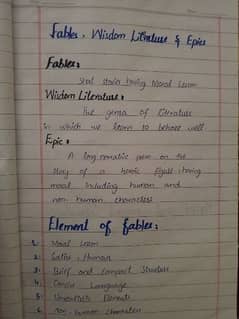 Fables, Wisdom Literature & Epics
Fables:
Short stories having Moral Lesson
Wisdom Literature:
The genra of literature
in which we learn to behave well
Epic:
A long narrative poem on the
story of a heroic figure having
moral including human and
non human characters
Element of fables:
1. Moral Lesson
2. Satire, Human
3. Brief and Compact Structure
4. Language
5. Elements
6. Non-human characters